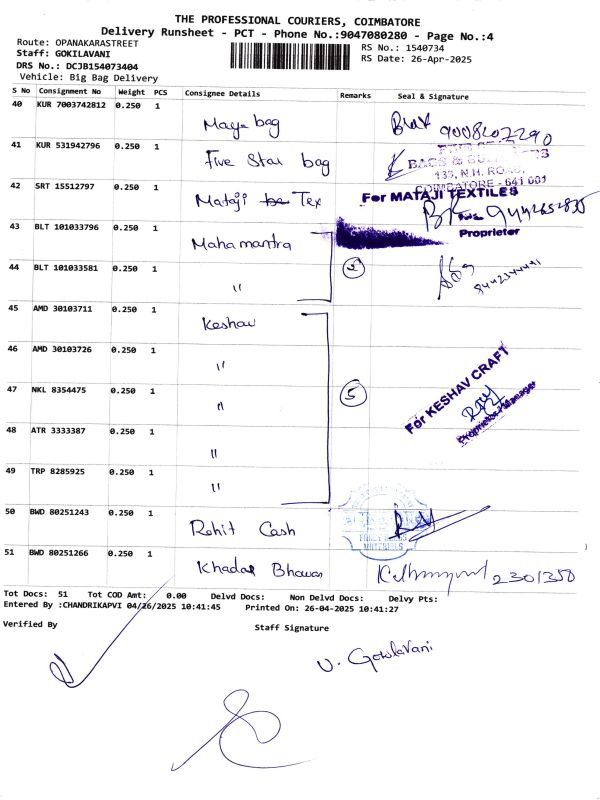 THE PROFESSIONAL COURIERS, COIMBATORE
Delivery Runsheet - PCT - Phone No.:9047080280 - Page No.:4
Route: OPANAKARASTREET
RS No.: 1540734
Staff: GOKILAVANI
RS Date: 26-Apr-2025
DRS No.: DCJB154073404
Vehicle: Big Bag Delivery
S No Consignment No Weight PCS Consignee Details Remarks Seal & Signature
40 KUR 7003742812 0.250 1
Maya bag 9008207290
41 KUR 531942796 0.250 1
Five Star bag
BAGS &
133, N.H. ROAD,
COIMBATORE - 641 001
42 SRT 15512797 0.250 1
Mataji Tex
For MATAJI TEXTILES
Proprietor
43 BLT 101033796 0.250 1
Mahamantra
44 BLT 101033581 0.250 1
" 2
45 AMD 30103711 0.250 1
Keshav
46 AMD 30103726 0.250 1
"
47 NKL 8354475 0.250 1
" 5
For KESHAV CRAFT
Proprietor/Manager
48 ATR 3333387 0.250 1
"
49 TRP 8285925 0.250 1
"
50 BWD 80251243 0.250 1
Rohit Cash
51 BWD 80251266 0.250 1
Khadar Bhavan 2301350
Tot Docs: 51 Tot COD Amt: 0.00 Delvd Docs: Non Delvd Docs: Delvy Pts:
Entered By :CHANDRIKAPVI 04/26/2025 10:41:45 Printed On: 26-04-2025 10:41:27
Verified By
Staff Signature
V. Gowlavani